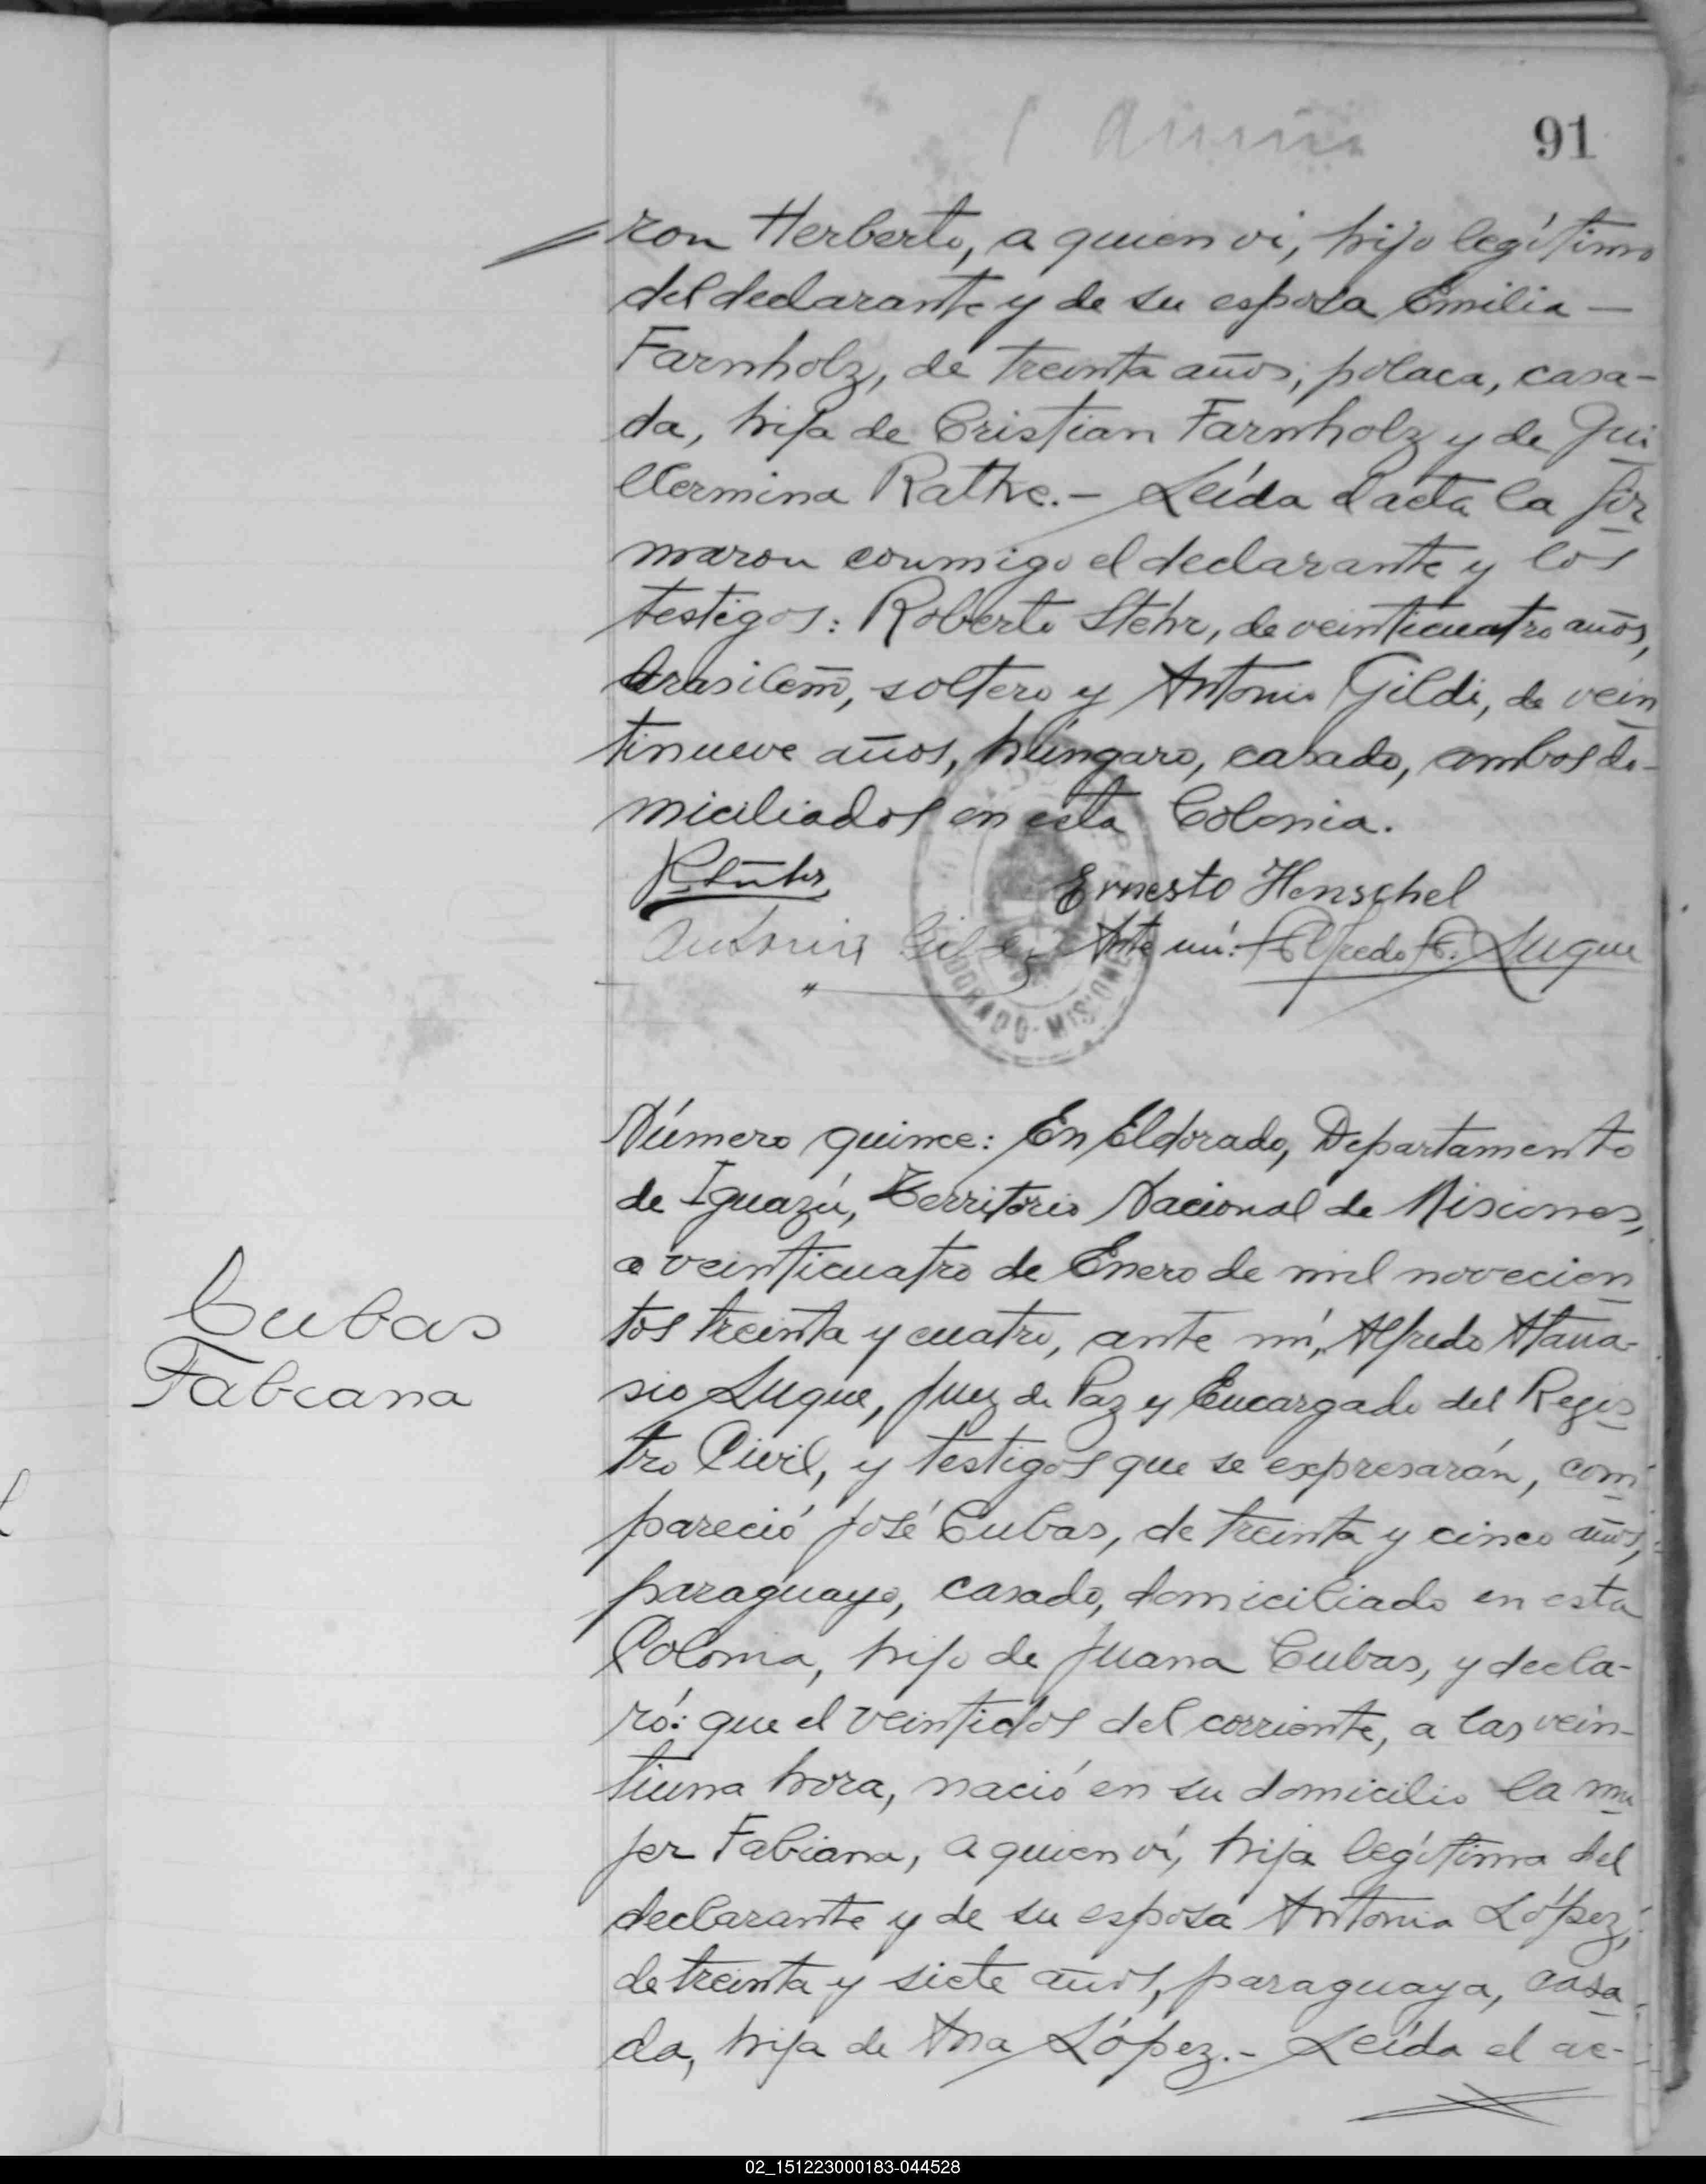 91
ron Herberto, a quien vi, hijo legítimo
del declarante y de su esposa Emilia —
Farnholz, de treinta años, polaca, casa-
da, hija de Cristian Farnholz y de Gui
llermina Rathe.- Leída el acta la fir
maron conmigo el declarante y los
testigos: Roberto Stehr, de veinticuatro años,
brasileño, soltero y Antonio Gildi, de vein
tinueve años, húngaro, casado, ambos do-
miciliados en esta Colonia.
Ernesto Henschel
Antonio Ante mí: Alfredo A. Luque
DORADO-MISIONES
Número quince: En Eldorado, Departamento
de Iguazú, Territorio Nacional de Misiones,
a veinticuatro de Enero de mil novecien
tos treinta y cuatro, ante mí, Alfredo Atana-
sio Luque, Juez de Paz y Encargado del Regis
tro Civil, y testigos que se expresarán, com
pareció José Cubas, de treinta y cinco años,
paraguayo, casado, domiciliado en esta
Colonia, hijo de Juana Cubas, y decla-
ró: que el veintidos del corriente, a las vein-
tiuna hora, nació en su domicilio la mu
jer Fabiana, a quien ví, hija legítima del
declarante y de su esposa Antonia López,
de treinta y siete años, paraguaya, casa
da, hija de Ana López.- Leída el ac-
Cubas
Fabiana
02_151223000183-044528